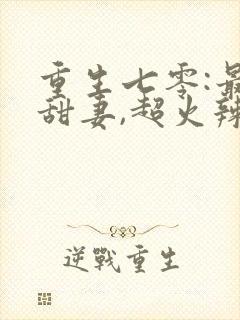 重生七零:最
甜妻,超火辣
逆戰重生